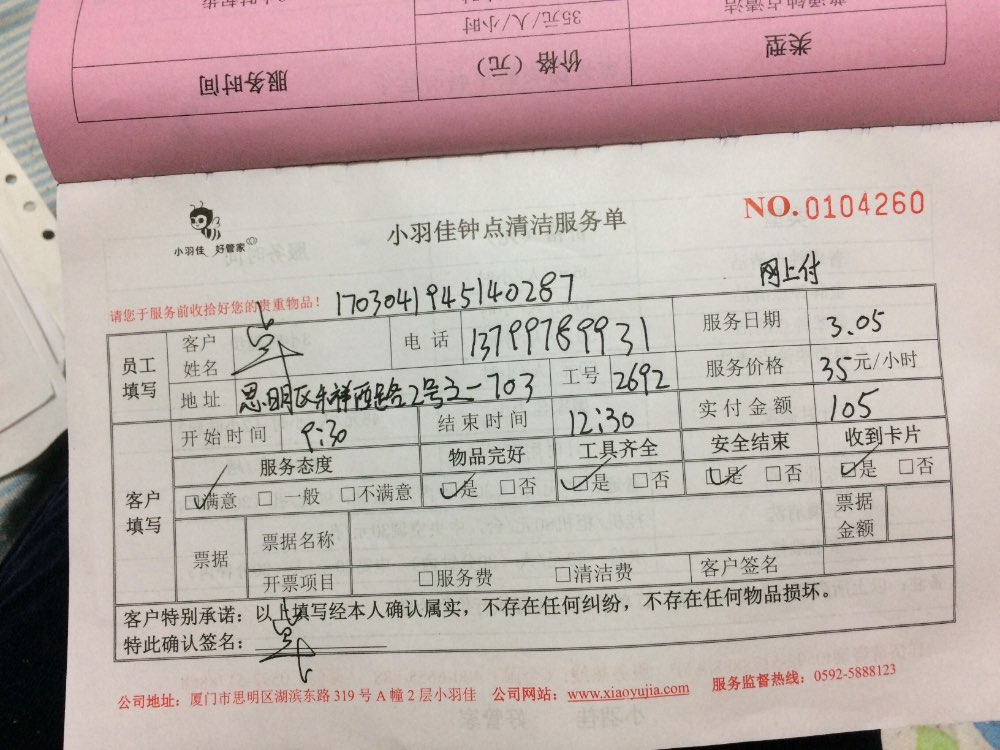 普通钟点清洁
35元/人/小时
类型
价格（元）
服务时间
小羽佳 好管家
小羽佳钟点清洁服务单
NO.0104260
请您于服务前收拾好您的贵重物品！
1703041945140287
网上付
员工填写
客户姓名
电话
13799789931
服务日期
3.05
地址
思明区禾祥西路2号之一703
工号
2692
服务价格
35元/小时
客户填写
开始时间
9:30
结束时间
12:30
实付金额
105
服务态度
物品完好
工具齐全
安全结束
收到卡片
☑满意 □一般 □不满意
☑是 □否
☑是 □否
☑是 □否
☑是 □否
票据
票据名称
票据金额
开票项目
□服务费 □清洁费
客户签名
客户特别承诺：以上填写经本人确认属实，不存在任何纠纷，不存在任何物品损坏。
特此确认签名：
公司地址：厦门市思明区湖滨东路 319 号 A 幢 2 层小羽佳 公司网站：www.xiaoyujia.com 服务监督热线：0592-5888123